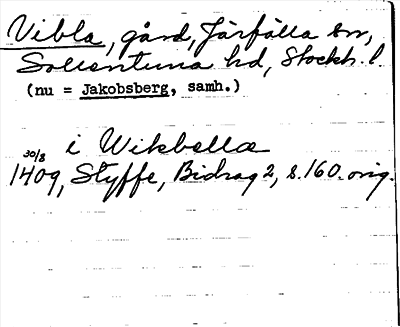 Vibla, gård, Järfälla sn,
Sollentuna hd, Stockh. l.
(nu = Jakobsberg, samh.)
i Wikbella
30/8
1409, Styffe, Bidrag 2, s. 160. orig.